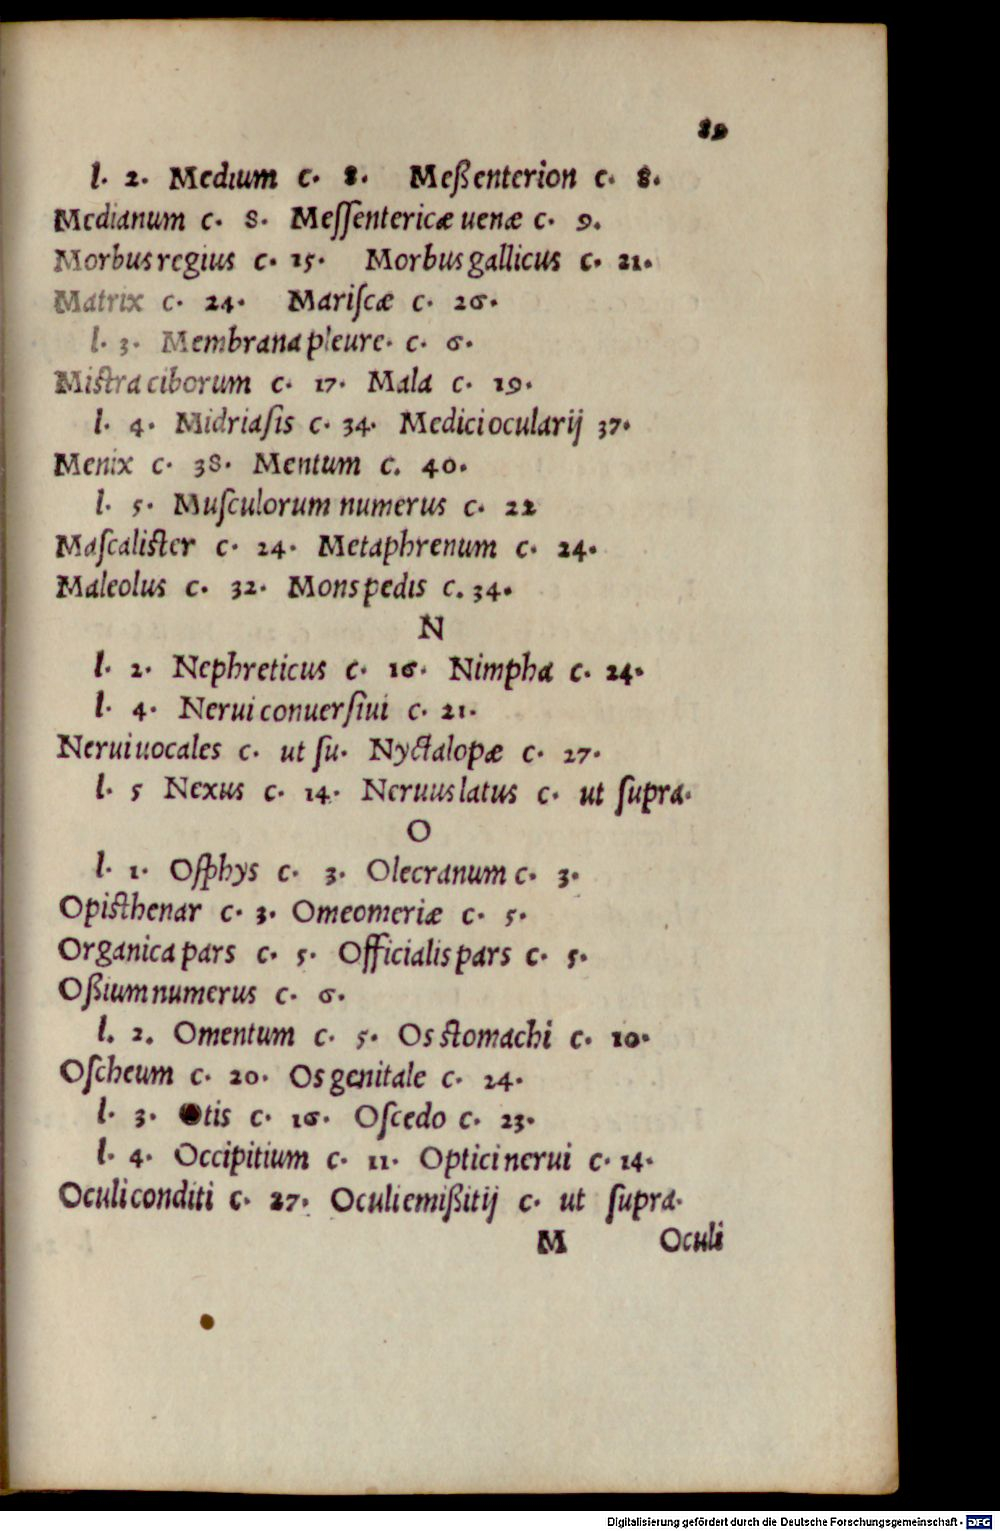 89
l. 2. Medium c. 8. Meßenterion c. 8.
Medianum c. 8. Meſſentericæ uenæ c. 9.
Morbus regius c. 15. Morbus gallicus c. 21.
Matrix c. 24. Mariſcæ c. 26.
l. 3. Membrana pleure. c. 6.
Mistra ciborum c. 17. Mala c. 19.
l. 4. Midriaſis c. 34. Medici ocularij 37.
Menix c. 38. Mentum c. 40.
l. 5. Muſculorum numerus c. 22
Maſcalister c. 24. Metaphrenum c. 24.
Maleolus c. 32. Mons pedis c. 34.
N
l. 2. Nephreticus c. 16. Nimpha c. 24.
l. 4. Nerui conuerſiui c. 21.
Nerui uocales c. ut ſu. Nyctalopæ c. 27.
l. 5 Nexus c. 14. Neruus latus c. ut ſupra.
O
l. 1. Oſphys c. 3. Olecranum c. 3.
Opisthenar c. 3. Omeomeriæ c. 5.
Organica pars c. 5. Officialis pars c. 5.
Oßium numerus c. 6.
l. 2. Omentum c. 5. Os stomachi c. 10.
Oſcheum c. 20. Os genitale c. 24.
l. 3. Otis c. 16. Oſcedo c. 23.
l. 4. Occipitium c. 11. Optici nerui c. 14.
Oculi conditi c. 27. Oculi emißitij c. ut ſupra.
M Oculi
Digitalisierung gefördert durch die Deutsche Forschungsgemeinschaft - DFG